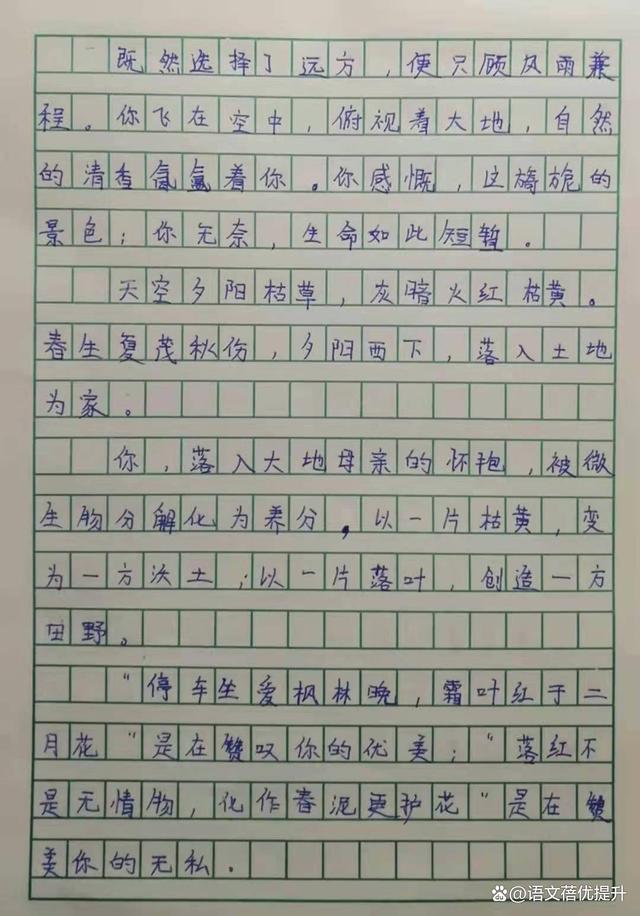 既然选择了远方，便只顾风雨兼
程。你飞在空中，俯视着大地，自然
的清香氤氲着你。你感慨，这旖旎的
景色；你无奈，生命如此短暂。
天空夕阳枯草，灰暗火红枯黄。
春生夏茂秋伤，夕阳西下，落入土地
为家。
你，落入大地母亲的怀抱，被微
生物分解化为养分，以一片枯黄，变
为一方沃土；以一片落叶，创造一方
田野。
“停车坐爱枫林晚，霜叶红于二
月花“是在赞叹你的优美；“落红不
是无情物，化作春泥更护花“是在赞
美你的无私.
@语文蓓优提升